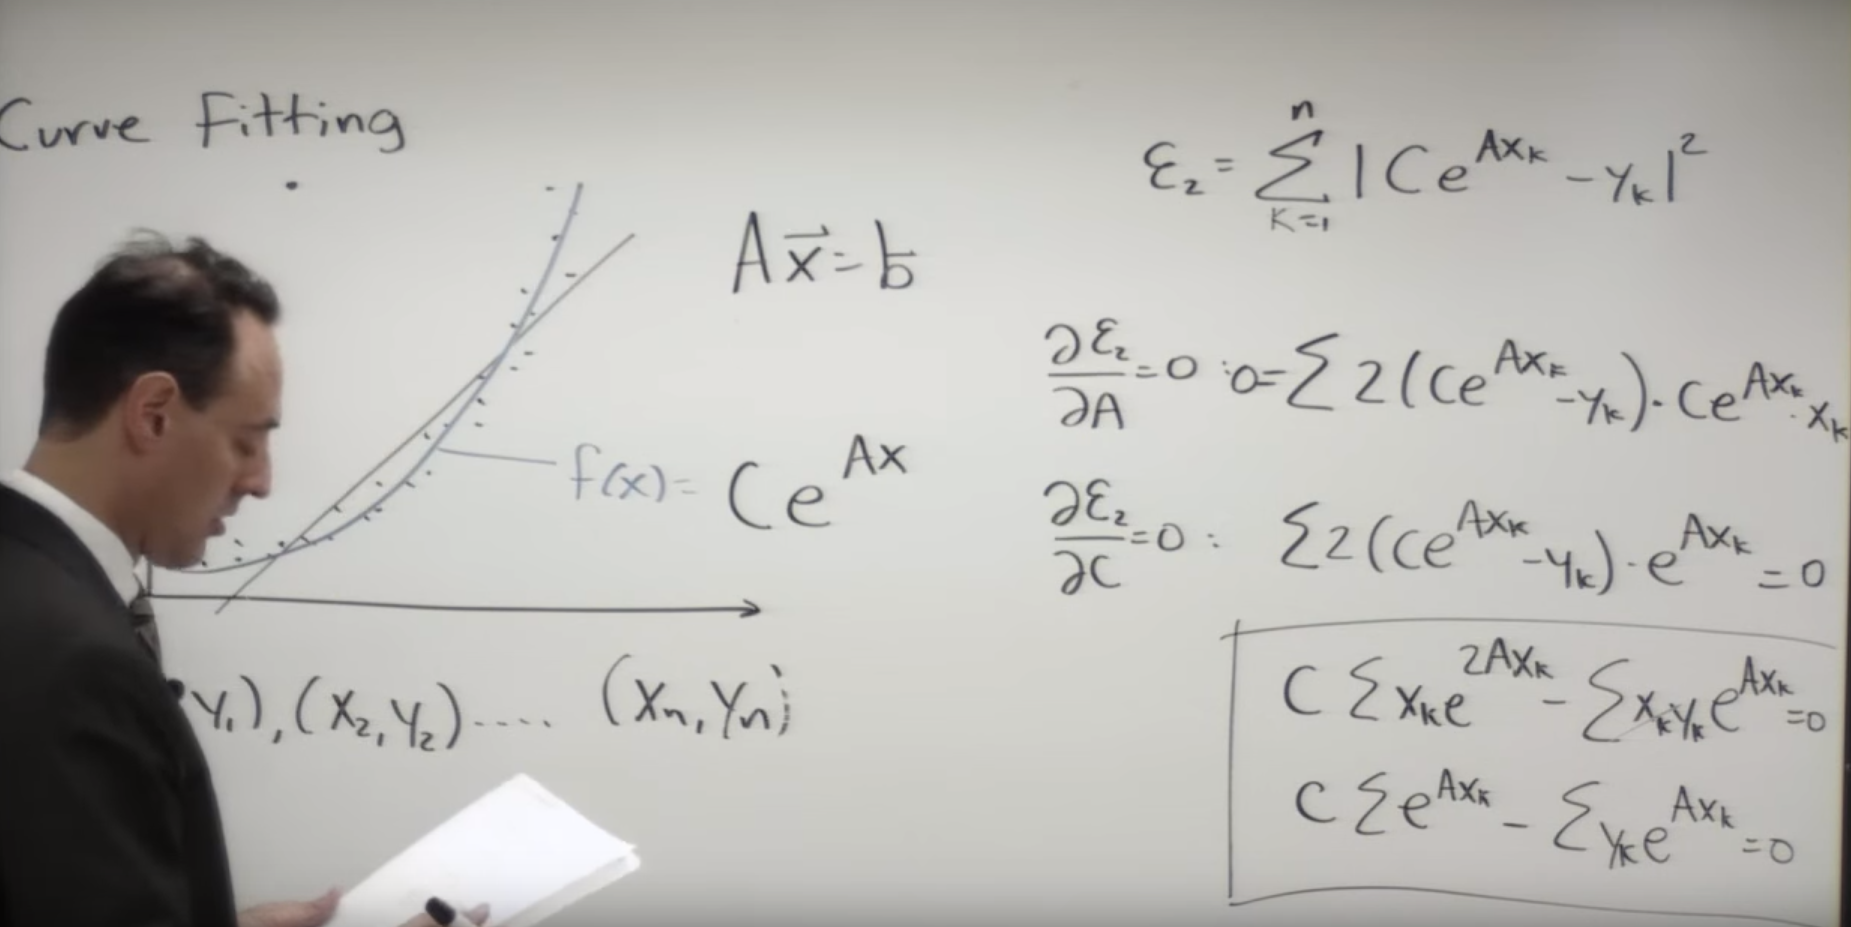 Curve Fitting
A x⃗ = b
f(x) = Ce^{Ax}
y₁), (x₂, y₂) ..... (xₙ, yₙ)
ε₂ = Σ_{k=1}^{n} |Ce^{Ax_k} - y_k|²
∂ε₂/∂A = 0 : 0 = Σ 2(Ce^{Ax_k} - y_k) · Ce^{Ax_k} · x_k
∂ε₂/∂C = 0 : Σ 2(Ce^{Ax_k} - y_k) · e^{Ax_k} = 0
C Σ x_k e^{2Ax_k} - Σ x_k y_k e^{Ax_k} = 0
C Σ e^{Ax_k} - Σ y_k e^{Ax_k} = 0